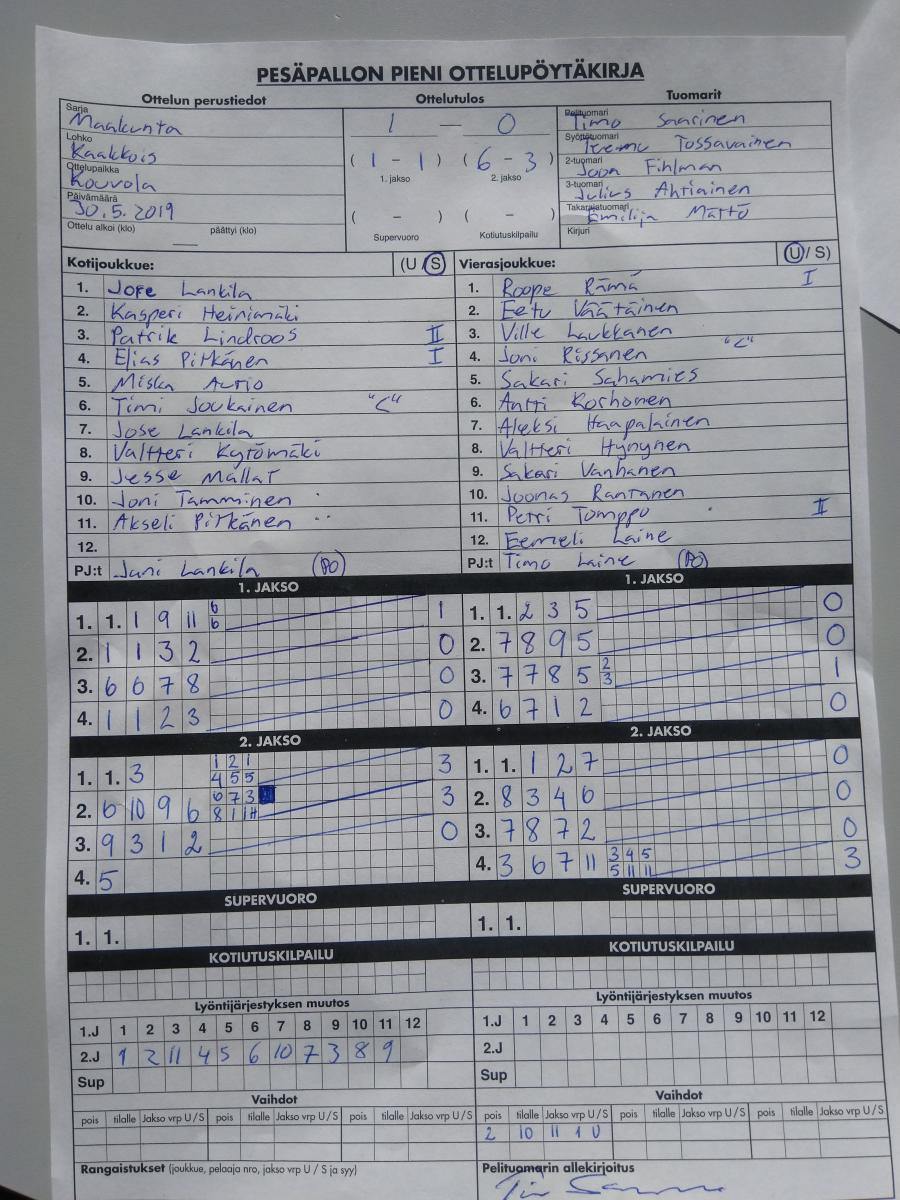 PESÄPALLON PIENI OTTELUPÖYTÄKIRJA
Ottelun perustiedot
Sarja
Maakunta
Lohko
Kaakkois
Ottelupaikka
Kouvola
Päivämäärä
30.5.2019
Ottelu alkoi (klo) päättyi (klo)
Ottelutulos
1 — 0
( 1 - 1 ) ( 6 - 3 )
1. jakso 2. jakso
( - ) ( - )
Supervuoro Kotiutuskilpailu
Tuomarit
Pelituomari
Timo Saarinen
Syöttötuomari
Teemu Tossavainen
2-tuomari
Joon Fihlman
3-tuomari
Julius Ahtiainen
Takarajatuomari
Emilija Mättö
Kirjuri
Kotijoukkue: (U / S)
1. Jore Lankila
2. Kasperi Heinimäki
3. Patrik Lindroos II
4. Elias Pitkänen I
5. Miska Aurio
6. Timi Joukainen "C"
7. Jose Lankila
8. Valtteri Kytömäki
9. Jesse Mallat
10. Joni Tamminen
11. Akseli Pitkänen
12.
PJ:t Juni Lankila (PO)
Vierasjoukkue: (U / S)
1. Roope Rämä I
2. Eetu Väätäinen
3. Ville Laukkanen
4. Joni Rissanen "C"
5. Sakari Sahamies
6. Antti Korhonen
7. Aleksi Haapalainen
8. Valtteri Hynynen
9. Sakari Vanhanen
10. Joonas Rantanen
11. Petri Tomppo II
12. Eemeli Laine
PJ:t Timo Laine (PO)
1. JAKSO
1. 1. 1 9 11 6 1
6
2. 1 1 3 2 0
3. 6 6 7 8 0
4. 1 1 2 3 0
2. JAKSO
1 2 1
1. 1. 3 4 5 5 3
6 7 3
2. 6 10 9 6 8 1 11 3
3. 9 3 1 2 0
4. 5
SUPERVUORO
1. 1.
KOTIUTUSKILPAILU
Lyöntijärjestyksen muutos
1.J 1 2 3 4 5 6 7 8 9 10 11 12
2.J 1 2 11 4 5 6 10 7 3 8 9
Sup
Vaihdot
pois tilalle Jakso vrp U / S pois tilalle Jakso vrp U / S pois tilalle Jakso vrp U / S
Rangaistukset (joukkue, pelaaja nro, jakso vrp U / S ja syy)
1. JAKSO
1. 1. 2 3 5 0
2. 7 8 9 5 0
3. 7 7 8 5 2 1
3
4. 6 7 1 2 0
2. JAKSO
1. 1. 1 2 7 0
2. 8 3 4 6 0
3. 7 8 7 2 0
4. 3 6 7 11 3 4 5 3
5 11 11
SUPERVUORO
1. 1.
KOTIUTUSKILPAILU
Lyöntijärjestyksen muutos
1.J 1 2 3 4 5 6 7 8 9 10 11 12
2.J
Sup
Vaihdot
pois tilalle Jakso vrp U / S pois tilalle Jakso vrp U / S pois tilalle Jakso vrp U / S
2 10 11 1 U
Pelituomarin allekirjoitus